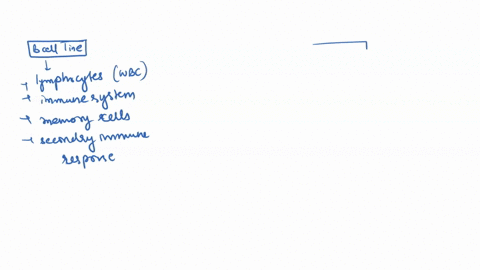 B cell line
lymphocytes (WBC)
immune system
memory cells
secondry immune
response